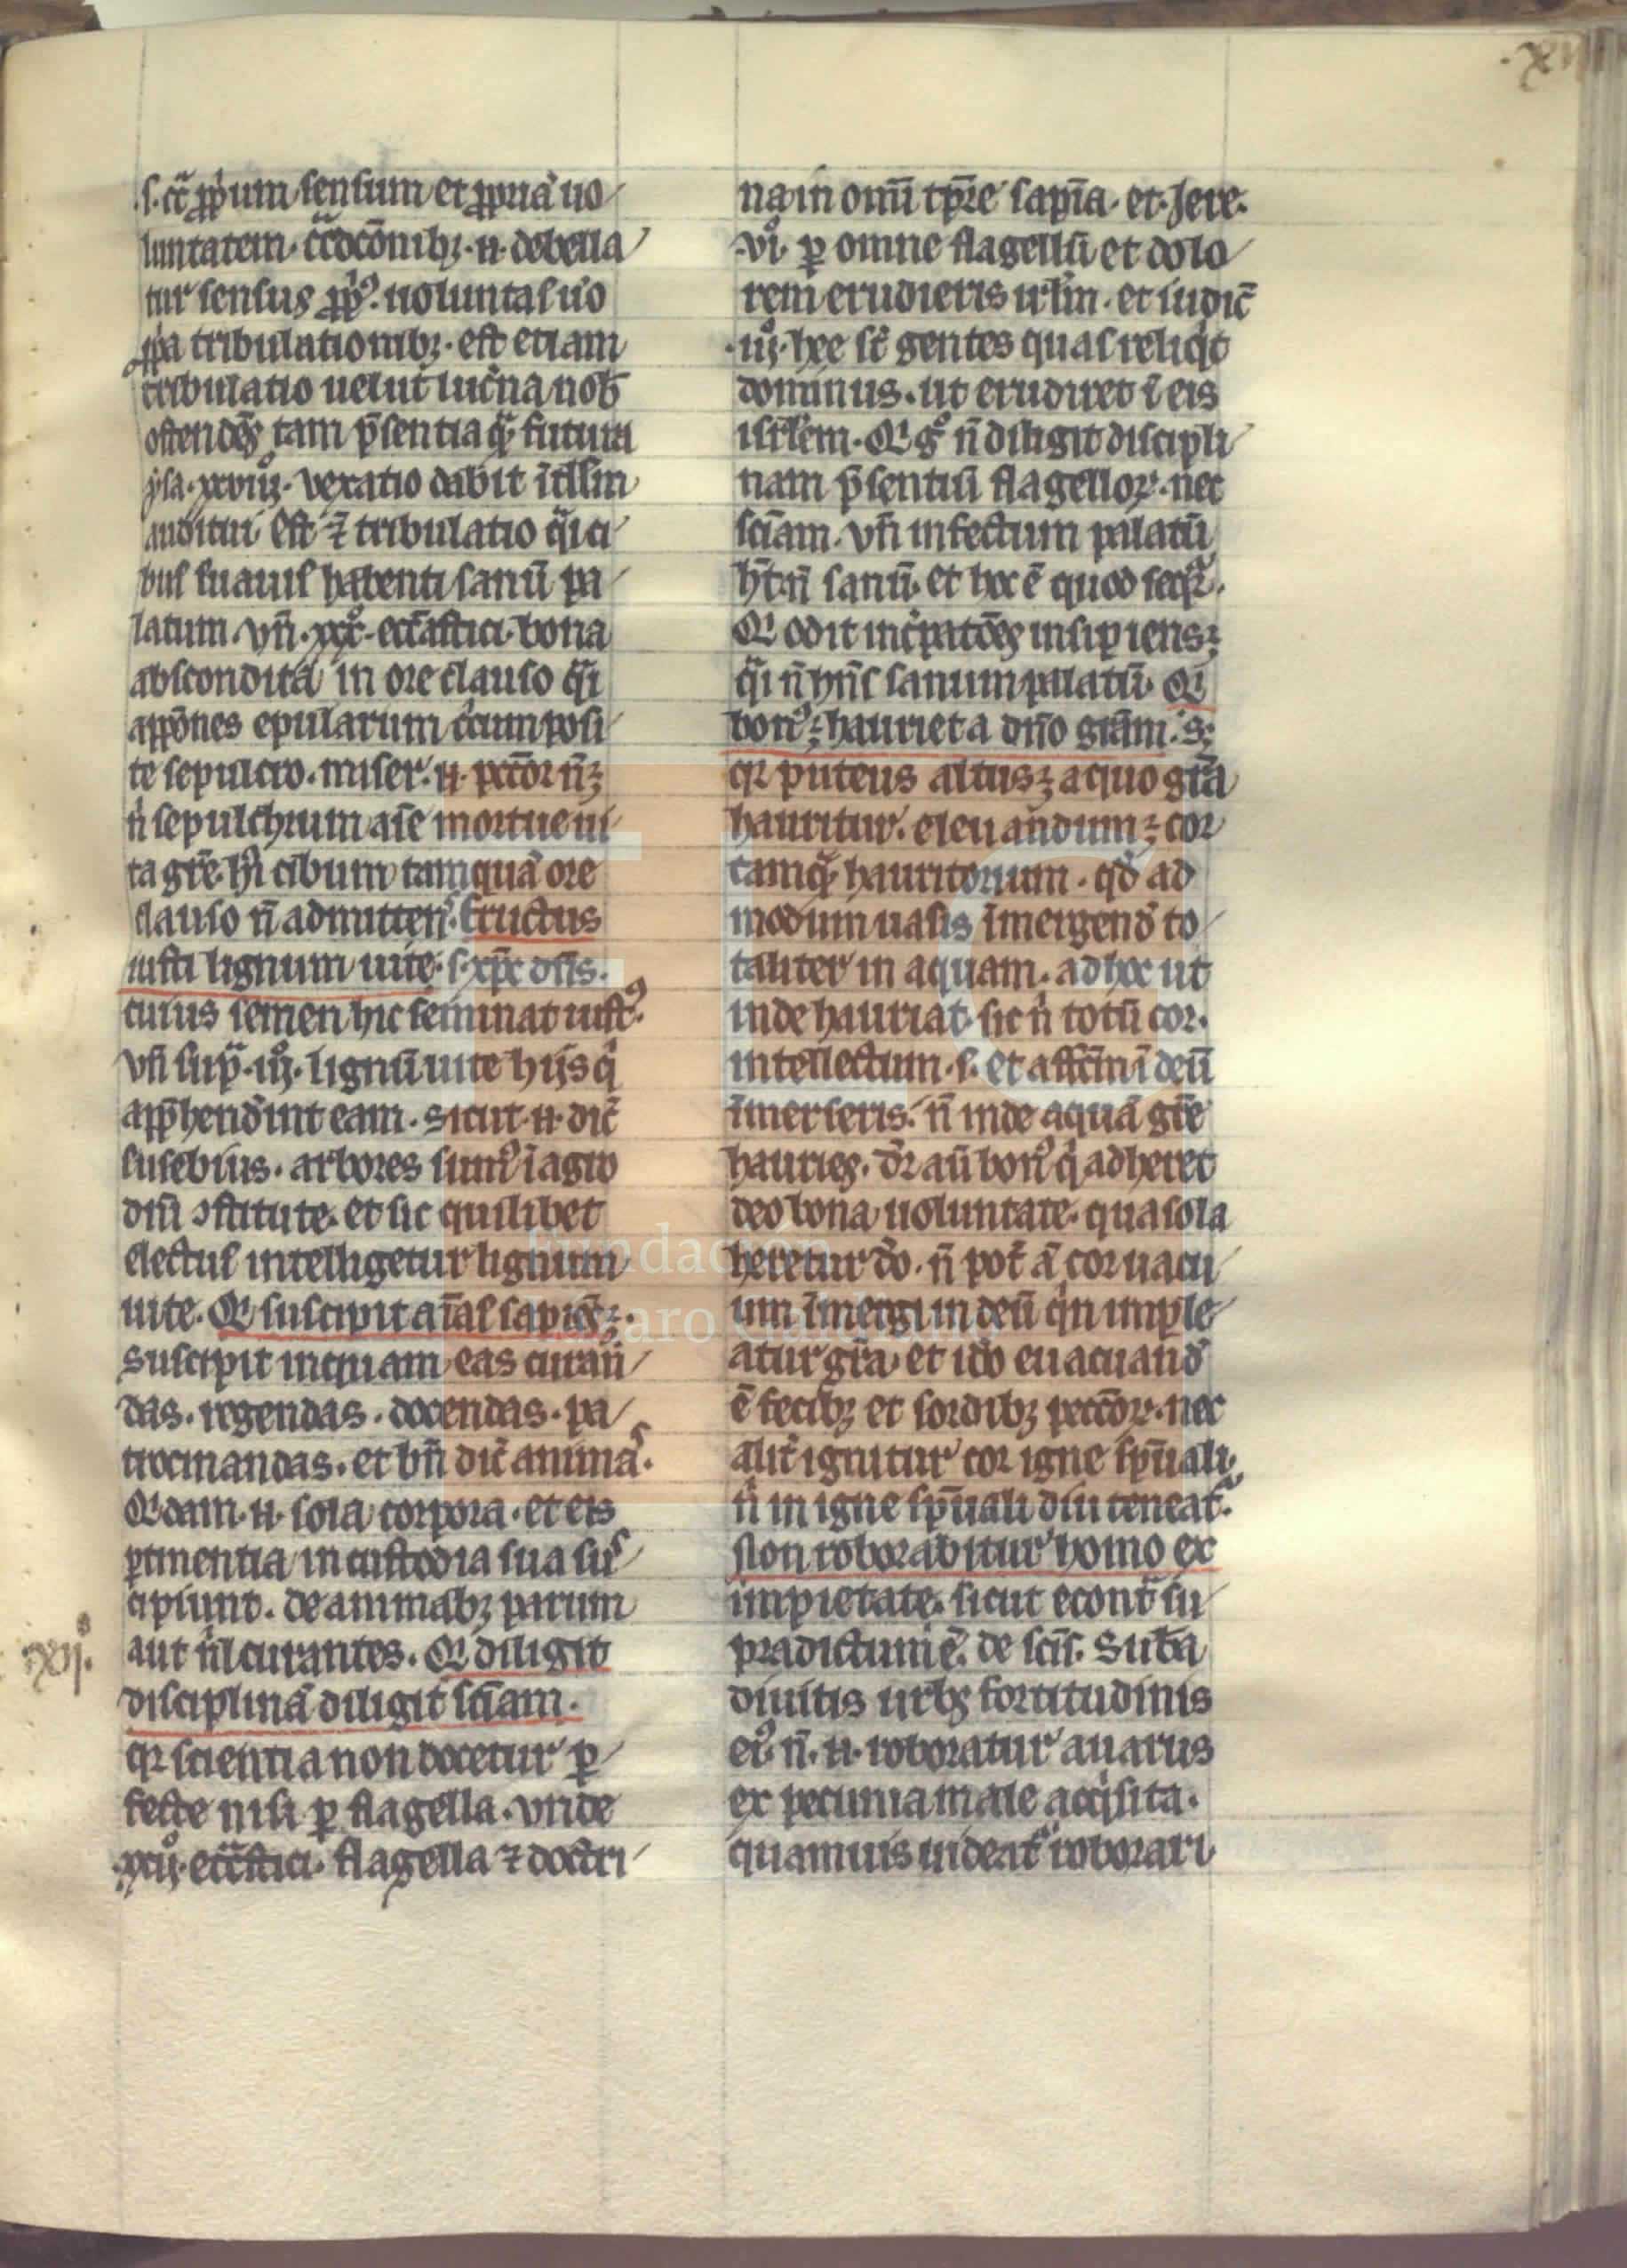 .xii
.s. cc̄ ꝓpͥum sensum et ꝓpriā uo
luntatem. cōtdcōnibꝫ .n. debella
tur sensus ꝓpͥꝰ. uoluntas ůo
ꝓpͥa tribulationibꝫ. est etiam
tribulatio uelut luc̓na nob̄
ostendēs tam p̄sentia qͣ̄ futura
ysa. xxviijͦ. vexatio dabit ītllm̄
auditui est ⁊̄ tribulatio qͣ̄i ci
bus suauis habenti sanū pa
latum. vn̄. xxxͦ. ecc̄astici. bona
abscondita in ore clauso qͣ̄i
appōnes epularum c̓cumposi
te sepulcro. miser .n. pccōr n̄ꝫ
n̓ sepulchrum aīe mortue ui
ta gr̄e. hͥ cibum tamquā ore
clauso n̄ admitten̄ᵗ. fructus
iusti lignum uite .s. xp̄c dn̄s.
cuius semen hic seminat iustꝰ.
vn̄ supͣ. iijͦ. lignū uite hijs qͥ
app̄hend̓int eam. sicut .n. dic̄
eusebius. arbores sumꝰ ī agro
dn̄i ↄstitute. et sic quilibet
electus intelligetur lignum
uite. Qͥ suscipit aīas sapiēs ꝫ.
suscipit inquam eas curan
das. regendas. docendas. pa
trocinandas. et bn̄ dic̄ animaˢ.
Qͥdam .n. sola corpora. et eis
ꝑtinentia in custodia sua suˢ
cipiunt. de animabꝫ parum
xijͦ.
aut nͥl curantes. Qͥ diligit
disciplinā diligit sciam̄.
qꝛ scientia non docetur ꝑ
fecte nisi ꝑ flagella. vnde
xxijͦ. ecc̄astici. flagella ⁊ doctri
na in om̄i tp̄re sapīa. et Jere.
.viͦ. ꝑ omne flagellū et dolo
rem erudieris irl̄m. et iudic̄
.iijͦ. hee st̄ gentes quas reliqͥt
dominus. ut erudiret ī eis
isrl̄em. Qͥ gͦ n̄ diligit discipli
nam p̄sentiū flagelloꝝ. nec
sciam̄. vn̄ infectum palatū
hꝫ. n̄ sanū. et hoc ē quod seqͥᵗ.
Qͥ odit inc̓patōes insipiens ꝫ
qͣ̄i n̄ hn̄s sanum palatū. Qͥ
bonꝰ ꝫ hauriet a dn̄o gr̄am. sꝫ
qꝛ puteus altus ꝫ a quo gr̄a
hauritur. eleuandum ꝫ cor
tamqͣ̄ hauritorium. qd̓ ad
modum uasis īmergend̓ to
taliter in aquam. ad hoc ut
inde hauriat. sic n̓ totū cor.
intellectum .s. et affcm̄ ī deū
īmerseris. n̄ inde aquā gr̄e
hauries. dr̄ aū bonꝰ qͥ adheret
deo bona uoluntate. qua sola
heretur d̓o. n̄ pot̄ ā cor uacu
um īmergi in deū qͥn imple
atur gr̄a. et id̓o euacuand̓
ē fecibꝫ et sordibꝫ pecc̄oꝝ. nec
alit̓ ignitur cor igne sp̄uali,
n̓ in igne sp̄uali diu teneatᵘ.
Non roborabitur homo ex
impietate. sicut econtͣ su
pra dictum ē. de scīs. Suba
diuitis urbs fortitudinis
eiꝰ. n̄ .n. roboratur auarus
ex pecunia male acqͥsita.
quamuis uideatᵘ roborari
Fundación
Lázaro Galdiano